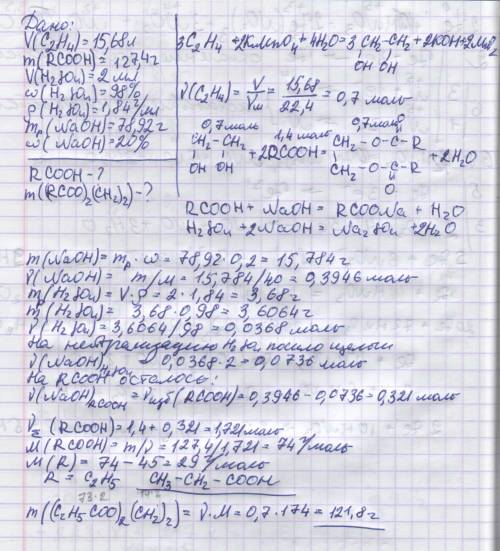 Дано:
V(C₂H₄) = 15,68л
m(RCOOH) = 127,4г
V(H₂SO₄) = 2 мл
ω(H₂SO₄) = 98%
ρ(H₂SO₄) = 1,84 г/мл
mр(NaOH) = 78,92г
ω(NaOH) = 20%
RCOOH - ?
m((RCOO)₂(CH₂)₂) - ?
3C₂H₄ + 2KMnO₄ + 4H₂O = 3 CH₂-CH₂ + 2KOH + 2MnO₂
OH OH
ν(C₂H₄) = V/Vм = 15,68/22,4 = 0,7 моль
0,7 моль 1,4 моль 0,7 моль O
CH₂-CH₂ + 2RCOOH = CH₂-O-C-R + 2H₂O
OH OH CH₂-O-C-R
O
RCOOH + NaOH = RCOONa + H₂O
H₂SO₄ + 2NaOH = Na₂SO₄ + 2H₂O
m(NaOH) = mр·ω = 78,92·0,2 = 15,784г
ν(NaOH) = m/M = 15,784/40 = 0,3946 моль
mр(H₂SO₄) = V·ρ = 2·1,84 = 3,68г
m(H₂SO₄) = 3,68·0,98 = 3,6064г
ν(H₂SO₄) = 3,6064/98 = 0,0368 моль
На нейтрализацию H₂SO₄ пошло щелочи
ν(NaOH)H₂SO₄ = 0,0368·2 = 0,0736 моль
На RCOOH осталось:
ν(NaOH)RCOOH = νизб(RCOOH) = 0,3946 - 0,0736 = 0,321 моль
νΣ(RCOOH) = 1,4 + 0,321 = 1,721 моль
M(RCOOH) = m/ν = 127,4/1,721 = 74 г/моль
M(R) = 74 - 45 = 29 г/моль
R = C₂H₅ CH₃-CH₂-COOH
73·2
m((C₂H₅COO)₂(CH₂)₂) = ν·M = 0,7·174 = 121,8г